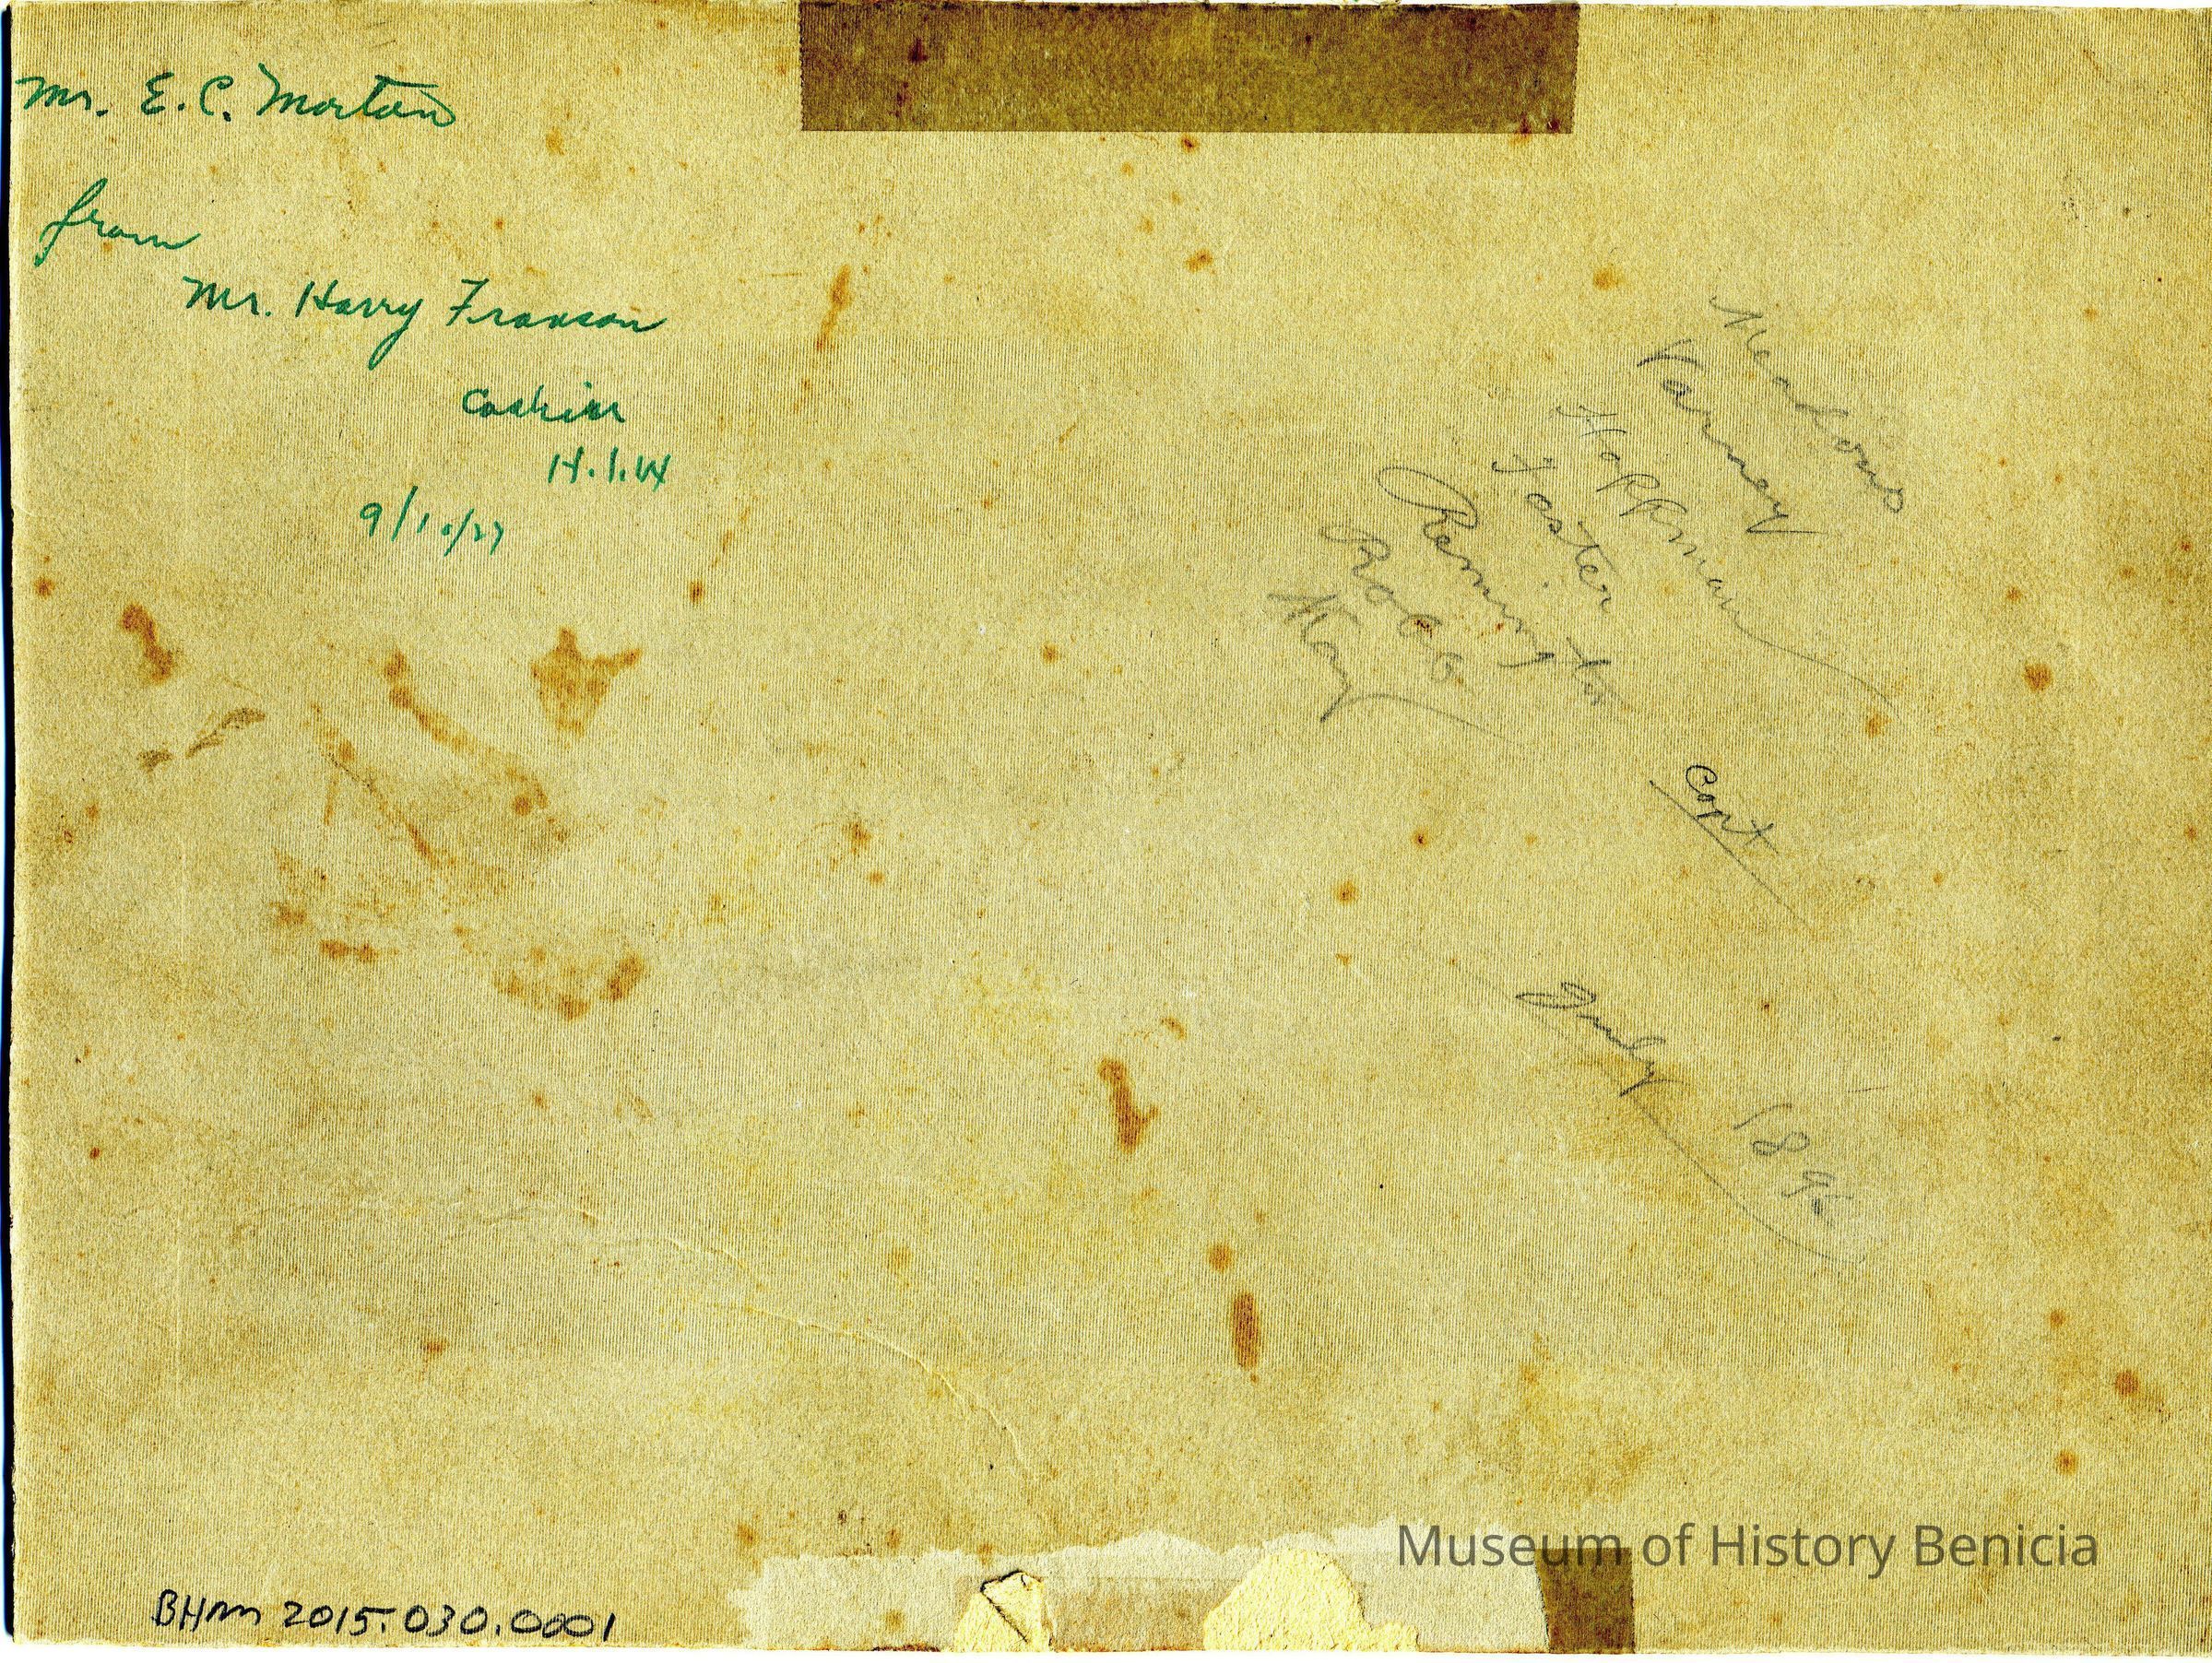 Mr. E. C. Morton
from
Mr. Harry Franson
Cashier
H.I.W
9/10/27
Varney
Hoffman
Foster
Remington
Kay
Capt
July 1896
BHM 2015.030.0001
Museum of History Benicia